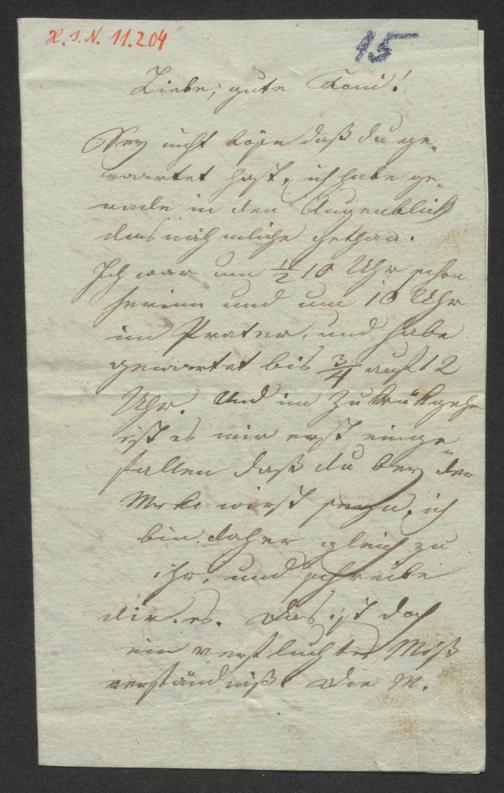 H. I. N. 11.204
15
Liebe, gute Toni!
Sey nicht böse daß du ge-
wartet hast, ich habe ge-
rade in den Augenblick
das nähmliche gethan.
Ich war um ½ 10 Uhr schon
herinn und um 10 Uhr
im Prater, und habe
gewartet bis ¾ auf 12
Uhr. Und im Zurükgehn
ist es mir erst einge
fallen daß du bey der
wirst seyn, ich
bin daher gleich zu
ihr, und schreibe
dir es. Das ist doch
ein verfluchtes Miß
verständniß. Die M.